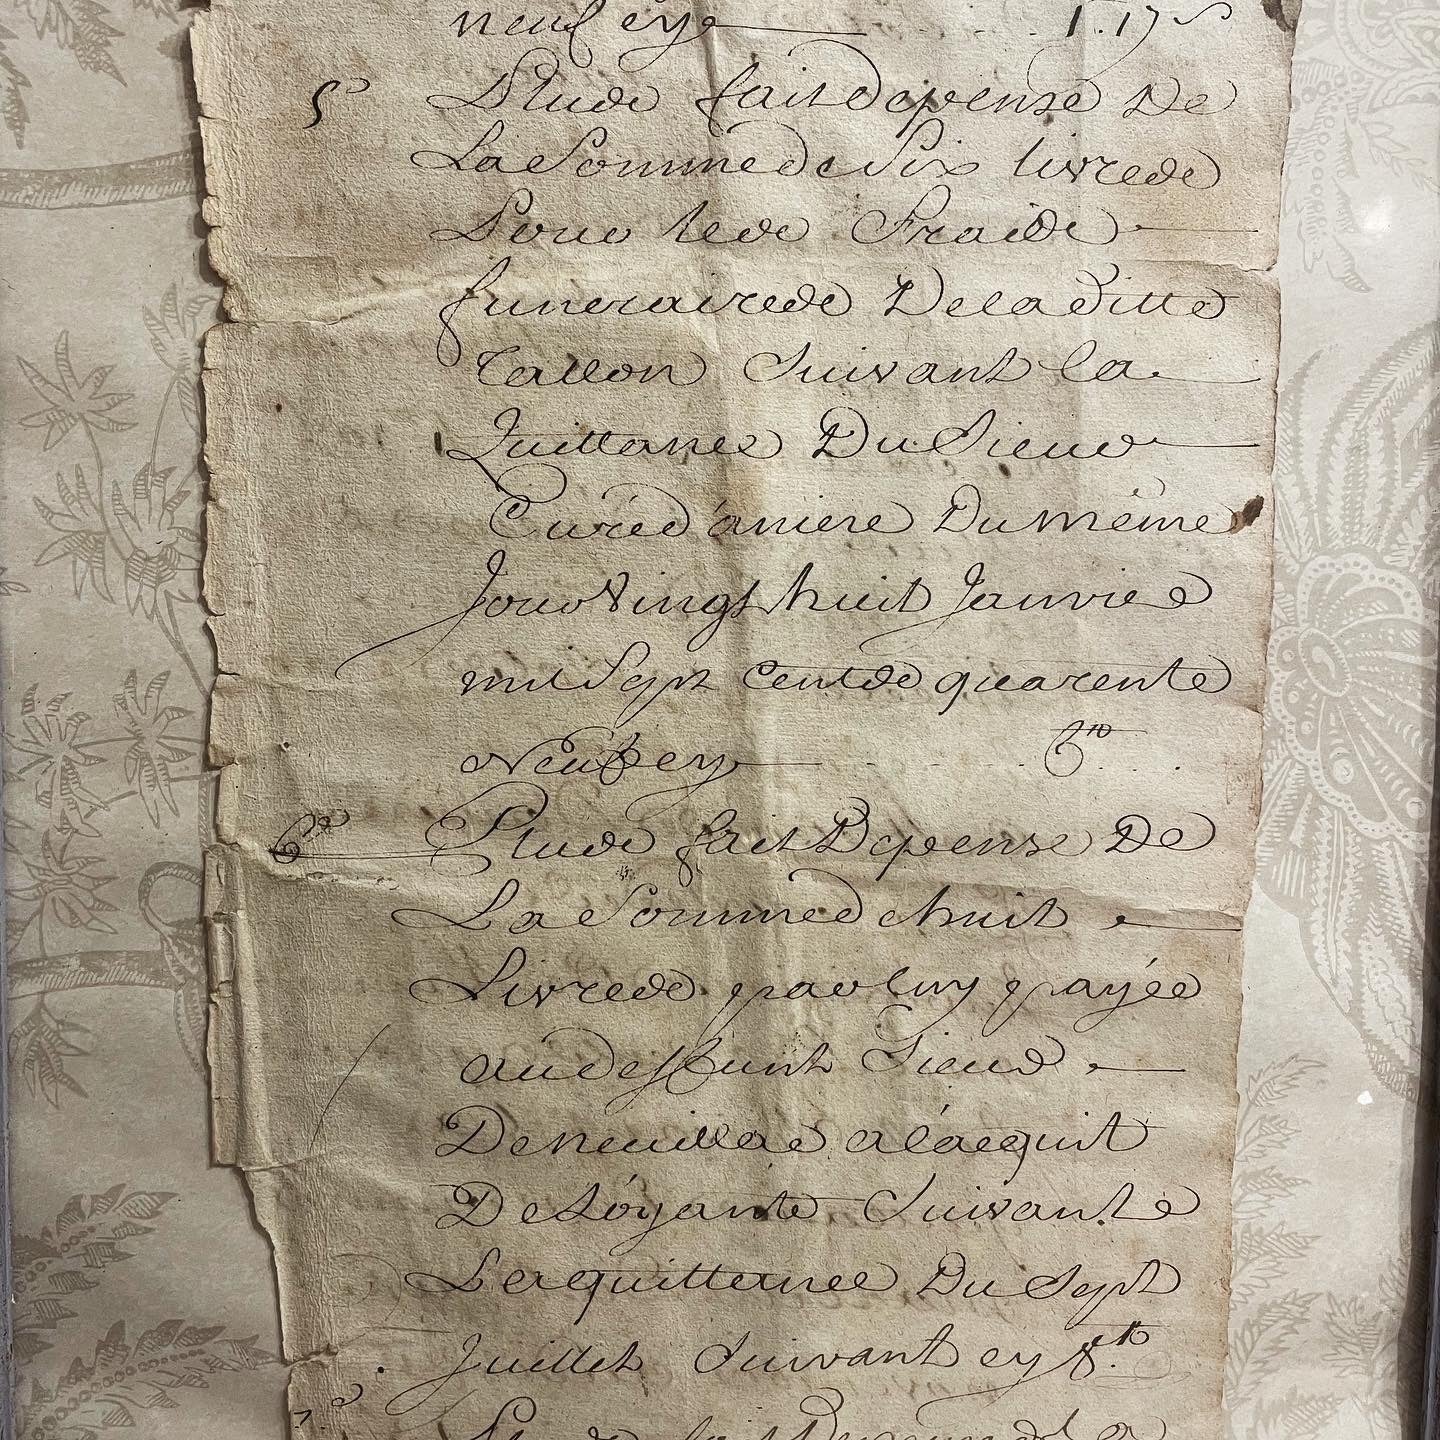 neuf cy 1.17 s
5° Plus fait depense De
La Somme de Six livres
Pour les Frais
funeraires De la ditte
Tallon Suivant la
Quittance Du Sieur
Curé d'aniere Du même
Jour vingt huit Janvier
mil Sept Cents quarente
Neuf cy 6 tt
6° Plus fait Depense De
La Somme de huit
Livres par luy payée
au deffunt Sieur
De neuillac a l'acquit
De Suivant
La quittance Du Sept
Juillet Suivant cy 8 tt